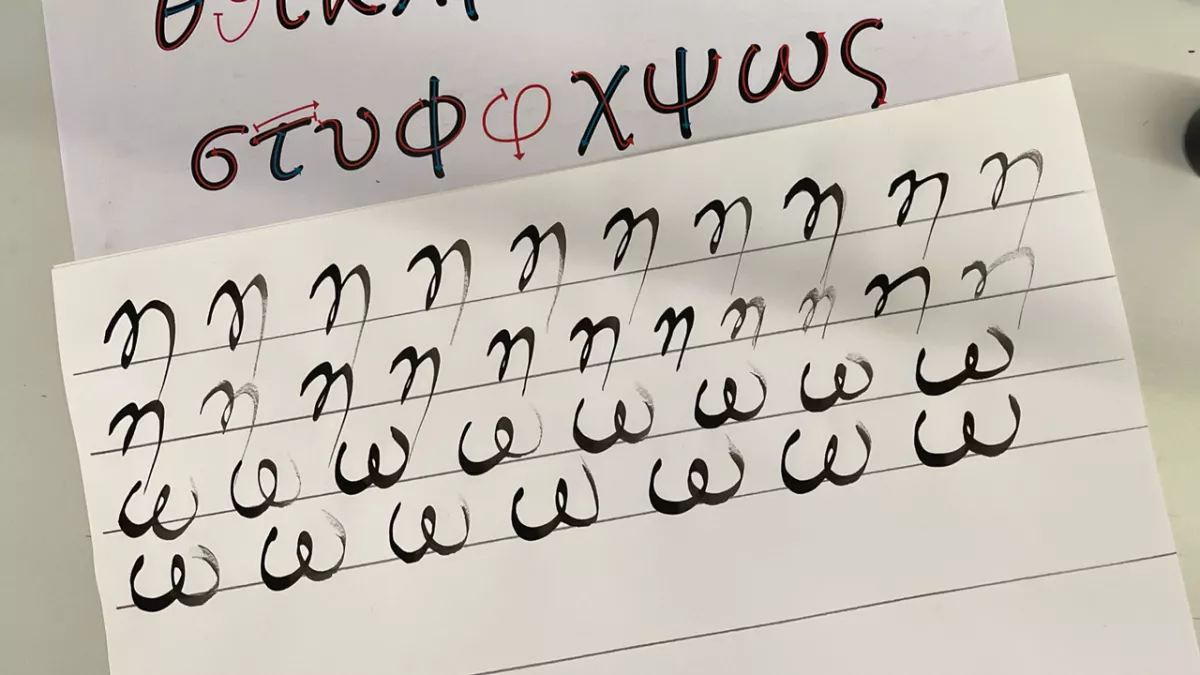 σ τ υ ϕ φ χ ψ ω ς
η η η η η η η η η η
η η η η η η η η η η η
ω ω ω ω ω ω ω ω
ω ω ω ω ω ω ω